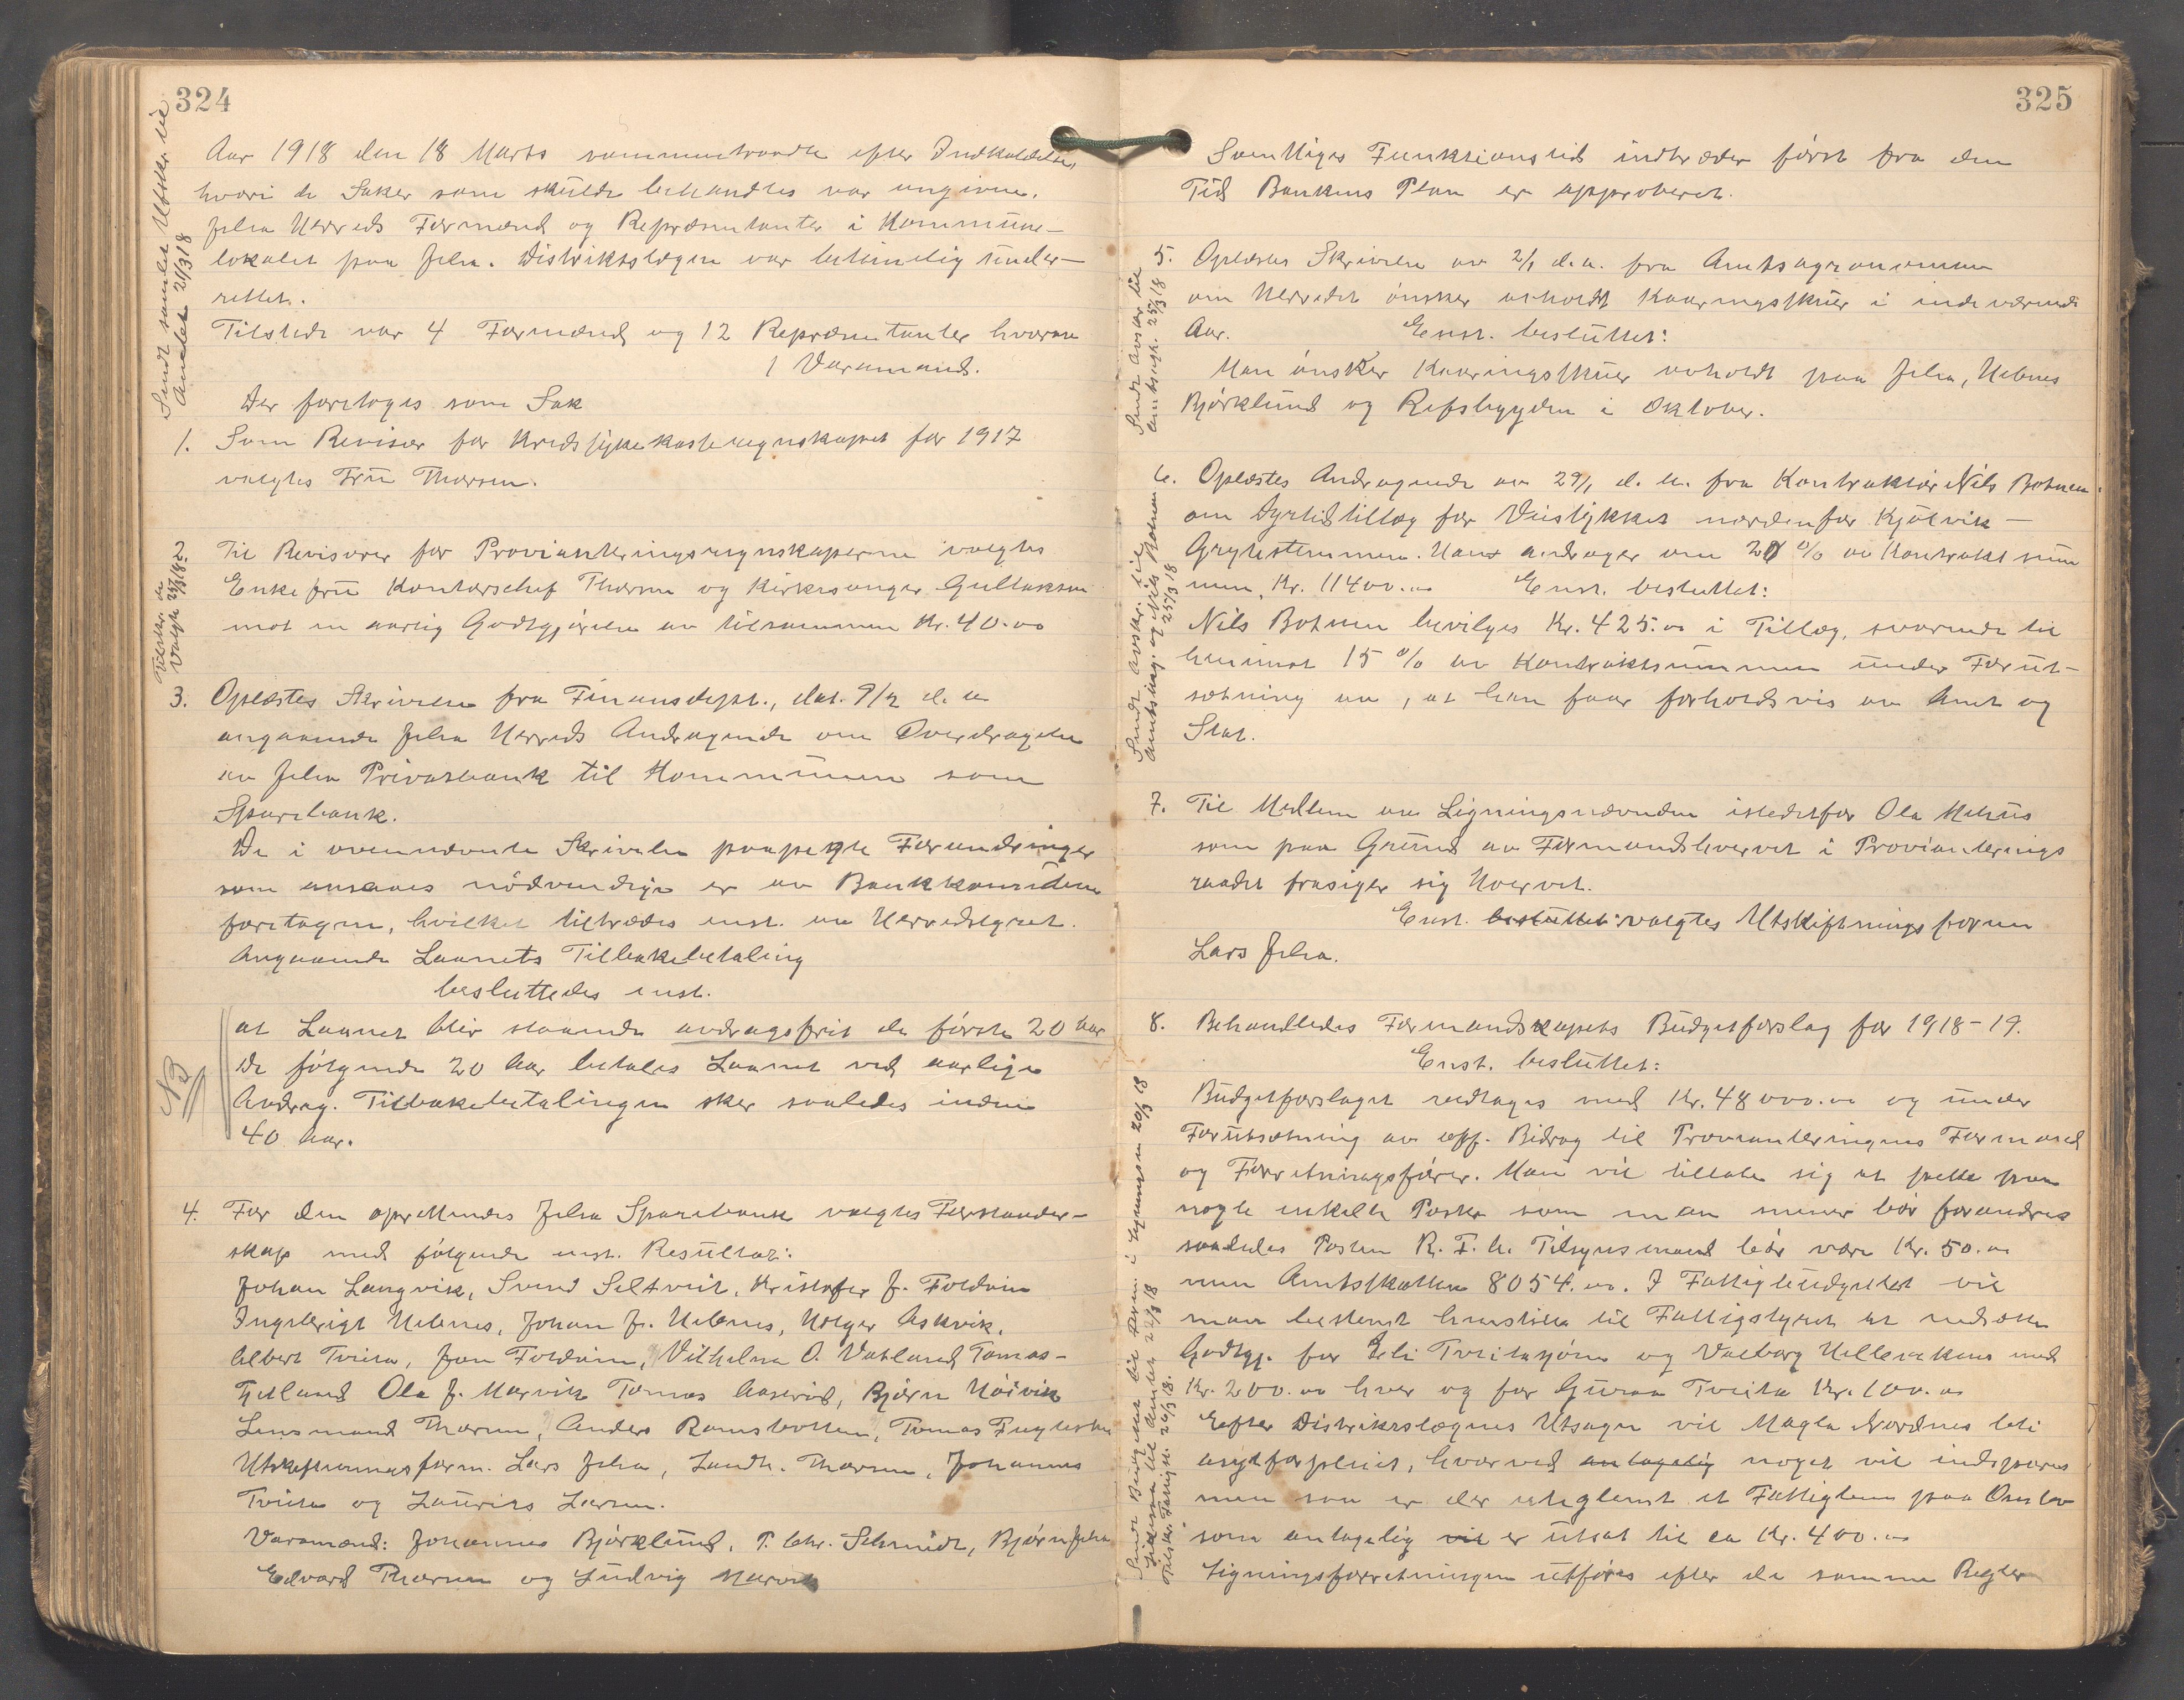 324
Sendt samlet Utskr. til
Amtet 21/3 18
Aar 1918 den 18 Marts sammentraadte efter Indkaldelse,
hvori de Saker som skulde behandles var angivne,
Jelsa Herreds Formænd og Repræsentanter i Kommune-
lokalet paa Jelsa. Distriktslægen var betimelig under-
rettet.
Tilstede var 4 Formænd og 12 Repræsentanter hvorav
1 Varamand.
Der foretoges som Sak
1. Som Revisor for Kredssykekasseregnskapet for 1917
valgtes Fru Thorsen.
2. Til Revisorer for Provianteringsregnskaperne valgtes
Enkefru Kontorschef Thorsen og Kirkesanger Gullaksen
mot en aarlig Godtgjørelse av tilsammen Kr. 40.00
Utskr. de
valgte 25/3 18
3. Oplæstes Skrivelse fra Finansdept., dat. 9/2 d. a
angaaende Jelsa Herreds Andragende om Overdragelse
av Jelsa Privatbank til Kommunen som
Sparebank.
De i ovennævnte Skrivelse paapegte Forandringer
som ansees nødvendige er av Bankkomiteen
foretagen, hvilket tiltrædes enst. av Herredsstyret.
Angaaende Laanets Tilbakebetaling
besluttedes enst.
NB
at Laanet blir staaende avdragsfrit de første 20 Aar
De følgende 20 Aar betales Laanet ved aarlige
Avdrag. Tilbakebetalingen sker saaledes inden
40 Aar.
4. For den oprettendes Jelsa Sparebank valgtes Forstander-
skap med følgende enst. Resultat:
Johan Langvik, Svend Seltveit, Kristofer J. Foldøin
Ingebrigt Hebnes, Johan J. Hebnes, Holger Askvik,
Albert Tveita, Jon Foldøin, Vilhelm O. Vatland, Tomas
Fjetland Ola J. Marvik Tomas Aaserød, Bjørn Høivik
Lensmand Thorsen, Anders Ramsbotten, Tomas
Utskiftningsform. Lars Jelsa, Landh. Thorsen, Johannes
Tveita og Laurits Larsen.
Varamænd: Johannes Bjørklund, P. Chr. Schmidt, Bjørn Jelsa
Edvard Thorsen og Ludvig Marvik
325
Samtliges Funktionstid indtræder først fra den
Tid Bankens Plan er approberet.
5. Oplæstes Skrivelse av 2/1 d.a. fra Amtsagronomen
om Herredet ønsker avholdt Kaaringsskuer i indeværende
Aar. Enst. besluttet:
Man ønsker Kaaringsskuer avholdt paa Jelsa, Hebnes
Bjørklund og Refsbygden i Oktober.
Sendt Avskr. til
Amtsagr. 25/3 18
6. Oplæstes Andragende av 29/1 d. a. fra Kontraktør Nils Botnen
om Dyrtidstillæg for Veistykket nordenfor Kjølvik -
Grytestemmen. Han andrager om 20 % av Kontraktsum
men, Kr. 11400.00 Enst. besluttet:
Nils Botnen bevilges Kr. 425.00 i Tillæg, svarende til
henimot 15 % av Kontraktsummen under Forut-
sætning av, at han faar forholdsvis av Amt og
Stat.
Sendt Avskr. til
Amtsing. og Nils Botnen
25/3 18
7. Til Medlem av Ligningsnævnden istedetfor Ola Mehus
som paa Grund av Formandshvervet i Provianterings
raadet frasiger sig Hvervet.
Enst. besluttet: valgtes Utskiftningsform
Lars Jelsa.
8. Behandledes Formandskapets Budgetforslag for 1918-19.
Enst. besluttet:
Budgetforslaget vedtages med Kr. 48000.00 og under
Forutsætning av off. Bidrag til Provianteringens Formand
og Forretningsfører. Man vil tillate sig at peke paa
nogle enkelte Poster som man mener bør forandres
saaledes Posten R. F. A. Tilsynsmand bør være Kr. 50.00
men Amtsskatten 8054.00. I Fattigbudgettet vil
man bestemt henstille til Fattigstyret at nedsætte
Godtgj. for Eli Tveitasjøen og Valborg med
Kr. 200.00 hver og for Guroa Tveita Kr. 100.00
Efter Distriktslægens Utsagn vil Magla Nordnes bli
asylforpleiet, hvorved antagelig noget vil indspares
men saa er der uteglemt et Fattiglem paa
som antagelig vil er utsat til ca Kr. 400.00
Ligningsforretningen utføres efter de samme Regler